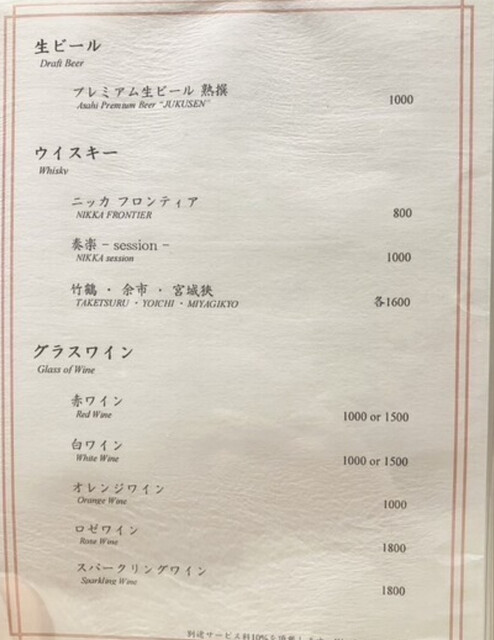 生ビール
Draft Beer
プレミアム生ビール 熟撰
Asahi Premium Beer "JUKUSEN"
1000
ウイスキー
Whisky
ニッカ フロンティア
NIKKA FRONTIER
800
奏楽 - session -
NIKKA session
1000
竹鶴 ・ 余市 ・ 宮城狭
TAKETSURU ・ YOICHI ・ MIYAGIKYO
各1600
グラスワイン
Glass of Wine
赤ワイン
Red Wine
1000 or 1500
白ワイン
White Wine
1000 or 1500
オレンジワイン
Orange Wine
1000
ロゼワイン
Rose Wine
1800
スパークリングワイン
Sparkling Wine
1800
別途サービス料10%を頂戴します